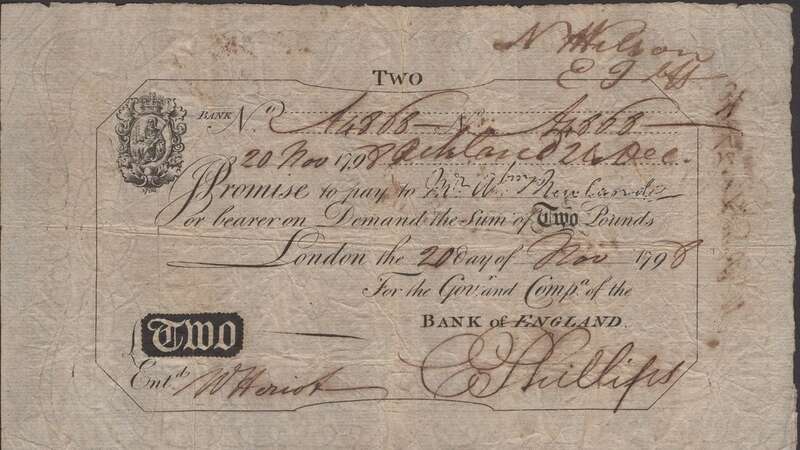 N Wilson
TWO
BANK No. A4868 No. A4868
20 Nov 1798
I Promise to pay to Mr. Abm. Newland
or bearer on Demand the Sum of Two Pounds
London the 20 day of Nov 1798
For the Gov.r and Comp.a of the
BANK of ENGLAND.
£ Two
Ent.d W Heriot C Phillips